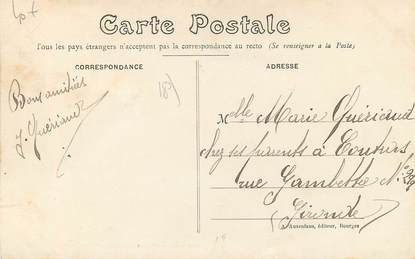 Carte Postale
Tous les pays étrangers n'acceptent pas la correspondance au recto (Se renseigner à la Poste)
CORRESPONDANCE
ADRESSE
Bons amitiés
J. Quériaud
Melle Marie Quériaud
chez ses parents à Coutras
rue Gambetta No
Gironde
Auxenfans, éditeur, Bourges